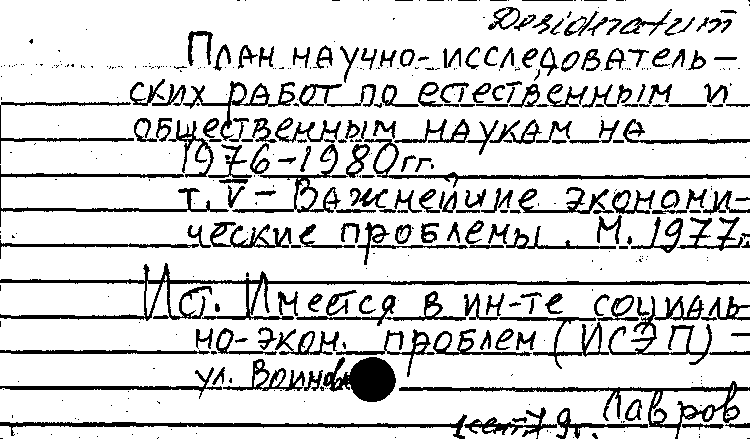 Desideratum
План научно-исследователь-
ских работ по естественным и
общественным наукам на
1976-1980гг.
т. V - Важнейшие экономи-
ческие проблемы. М. 1977г.
Ист. Имеется в ин-те социаль-
но-экон. проблем (ИСЭП) -
ул. Воинов
Лавров
1 сент 79г.